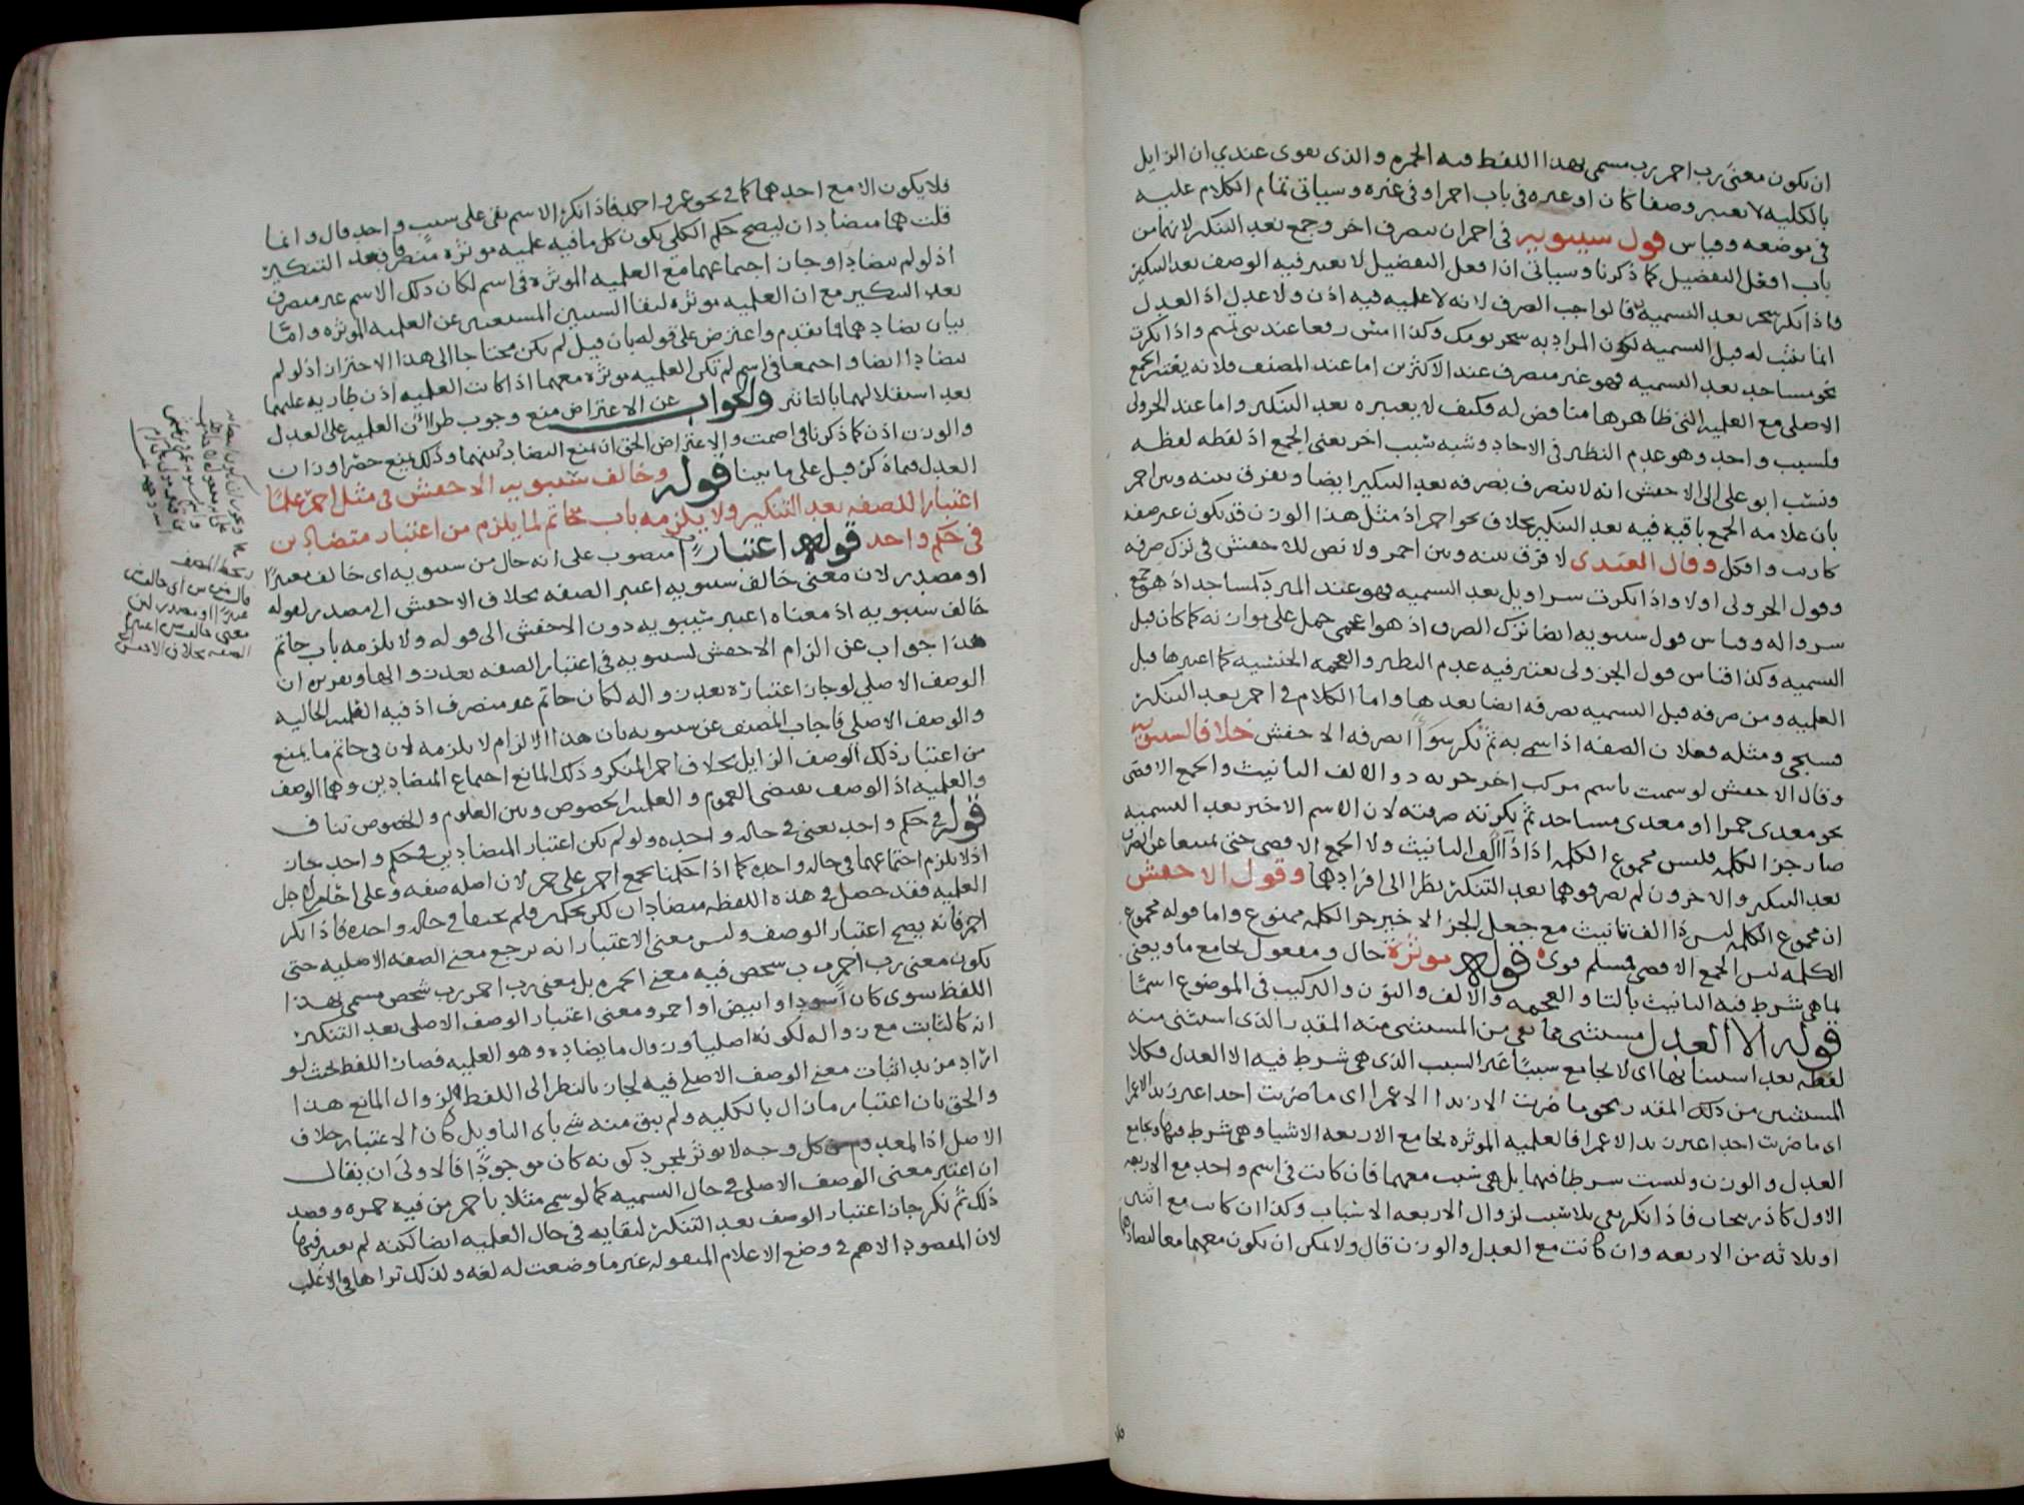 ان يكون معنى رب احمر رب مسمى بهذا اللفظ فيه الحمره والذى يقوى عندي ان الزايل
بالكليه لا يعتبر وصفا كان او غيره فى باب احمر او فى غيره وسياتى تمام الكلام عليه
فى موضعه وقياس قول سيبويه فى اخر ان ينصرف اخر وجمع بعد التنكير لانهما من
باب افعل التفضيل كما ذكرنا وسياتى ان افعل التفضيل لا يعتبر فيه الوصف بعد التنكير
فاذا نكر سحر بعد التسميه قالوا جب الصرف لانه لا علميه فيه اذن ولا عدل اذ العدل
انما يثبت له قبل التسميه لكون المراد به سحر يومك وكذا امس رفعا عند بنى تميم واذا نكرت
نحو مساجد بعد التسميه فهو غير منصرف عند الاكثرين اما عند المصنف فلانه يعتبر الجمع
الاصلى مع العلميه التى ظاهرها مناقض له فكيف لا يعتبره بعد التنكير واما عند الجزولى
فلسبب واحد وهو عدم النظير فى الاحاد وشبه سبب اخر يعنى الجمع اذ لفظه لفظه
ونسب ابو على الى الاخفش انه لا ينصرف بصرفه بعد التنكير ايضا ويفرق بينه وبين احمر
بان علامه الجمع باقيه فيه بعد التنكير بخلاف نحو احمر اذ مثل هذا الوزن قد يكون غير صفه
كارنب وافكل وقال العبدى لا فرق بينه وبين احمر ولا نص للاخفش فى ترك صرفه
وقول الجزولى اولا واذا نكرت سراويل بعد التسميه فهو عند المبرد كمساجد اذ هو جمع
سرواله وقياس قول سيبويه ايضا ترك الصرف اذ هو اعجمى حمل على موازنه كما كان قبل
التسميه وكذا قياس قول الجزولى يعتبر فيه عدم النظير والعجمه الجنسيه كما اعتبرها قبل
العلميه ومن صرفه قبل التسميه صرفه ايضا بعدها واما الكلام فى احمر بعد التنكير
فسيجى ومثله فعلان الصفه اذا سمى به ثم نكر سواء اصرفه الاخفش خلافا لسيبويه
وقال الاخفش لو سميت باسم مركب اخر جزئه ذو الالف التانيث والجمع الاقصى
نحو معدى حمرا او معدى مساجد ثم نكرته صرفته لان الاسم الاخير بعد التسميه
صار جزء الكلمه فليس مجموع الكلمه اذا ذا الف التانيث ولا الجمع الاقصى حتى يمتنعا عن الصرف
بعد التنكير والاخرون لم يصرفوهما بعد التنكير نظرا الى افرادهما وقول الاخفش
ان مجموع الكلمه ليس ذا الف تانيث مع جعل الجزء الاخير جزء الكلمه ممنوع واما قوله مجموع
الكلمه ليس الجمع الاقصى فمسلم قوى قوله موثرة حال ومفعول يجامع ما ويعنى
بما هى شرط فيه التانيث بالتا والعجمه والالف والنون والتركيب فى الموضوع اسمًا
قوله الا العدل مستثنى مما بقى من المستثنى منه المقدر الذى استثنى منه
لفظه بعد استثنائها اى لا يجامع سببا غير السبب الذى هى شرط فيه الا العدل فكلا
المستثنيين من ذلك المقدر نحو ما ضربت الا زيدا الا عمرا اى ما ضربت احدا غير زيد الا عمرا
اى ما ضربت احدا غير زيد الا عمرا فالعلميه الموثره تجامع الاربعه الاشيا وهى شرط فيها وتجامع
العدل والوزن وليست شرطا فيهما بل هى سبب معهما فان كانت فى اسم واحد مع الاربعه
الاول كاذربيجان فاذا نكر بقى بلا سبب لزوال الاربعه الاسباب وكذا ان كانت مع اثنين
او ثلاثه من الاربعه وان كانت مع العدل والوزن قال ولا يمكن ان يكون معهما معا لتضادهما
فلا يكون الا مع احدهما كما فى نحو عمر واحمد فاذا نكر الاسم بقى على سبب واحد قال وانما
قلت هما متضادان ليصح حكم الكلى بكون كل ما فيه علميه موثره منصرفا بعد التنكير
اذ لو لم يتضادا وجاز اجتماعهما مع العلميه الموثره فى اسم لكان ذلك الاسم غير منصرف
بعد التنكير مع ان العلميه موثره لبقا السببين المستغنيين عن العلميه الموثره واما
بيان تضادهما فما تقدم واعترض على قوله بان قيل لم يكن محتاجا الى هذا الاحتراز اذ لو لم
يتضادا ايضا واجتمعا فى اسم لم تكن العلميه موثره معهما اذا كانت العلميه اذن طاريه عليهما
بعد استقلالهما بالتاثير والجواب عن الاعتراض منع وجوب طرائان العلميه على العدل
والوزن اذن كما ذكرنا فى اصمت والاعتراض الحق ان نمنع التضاد بينهما وذلك بمنع حصر اوزان
العدل فيما ذكر قبل على ما بينا قوله وخالف سيبويه الاخفش فى مثل احمر علما
اعتبارا للصفه بعد التنكير ولا يلزمه باب حاتم لما يلزم من اعتبار متضادين
فى حكم واحد قوله اعتبارا منصوب على انه حال من سيبويه اى خالف معتبرًا
او مصدر لان معنى خالف سيبويه اعتبر الصفه بخلاف الاخفش الى مصدر لقوله
خالف سيبويه اذ معناه اعتبر سيبويه دون الاخفش الى قوله ولا يلزمه باب حاتم
هذا جواب عن الزام الاخفش لسيبويه فى اعتبار الصفه بعد زوالها وتقريره ان
الوصف الاصلى لو جاز اعتباره بعد زواله لكان حاتم غير منصرف اذ فيه العلميه الحاليه
والوصف الاصلى فاجاب المصنف عن سيبويه بان هذا الالزام لا يلزمه لان فى حاتم ما يمنع
من اعتبار ذلك الوصف الزايل بخلاف احمر المنكر وذلك المانع اجتماع المتضادين وهما الوصف
والعلميه اذ الوصف يقتضى العموم والعلميه الخصوص وبين العلوم والخصوص تناف
قوله فى حكم واحد يعنى فى حاله واحده ولو لم يكن اعتبار المتضادين فى حكم واحد جاز
اذ لا يلزم اجتماعهما فى حاله واحده كما اذا حكمنا بجمع احمر على حمر لان اصله صفه وعلى احامر لاجل
العلميه فقد حصل فى هذه اللفظه متضادان لكن بحكمين فلم يجتمعا فى حاله واحده فاذا نكر
احمر فانه يصح اعتبار الوصف وليس معنى الاعتبار انه يرجع معنى الصفه الاصليه حتى
يكون معنى رب احمر رب شخص فيه معنى الحمره بل معنى رب احمر رب شخص مسمى بهذا
اللفظ سوى كان اسود او ابيض او احمر ومعنى اعتبار الوصف الاصلى بعد التنكير
انه كالثابت مع زواله لكونه اصليا وزوال ما يضاده وهو العلميه فصار اللفظ بحيث لو
اراد مريد اثبات معنى الوصف الاصلى فيه لجاز بالنظر الى اللفظ لزوال المانع هذا
والحق بان اعتبار ما زال بالكليه ولم يبق منه شى باى التاويل كان الاعتبار خلاف
الاصل اذا المعدوم من كل وجه لا يوثر بمجرد كونه كان موجودًا فالاولى ان يقال
ان اعتبر معنى الوصف الاصلى فى حال التسميه كما لو سمى مثلا باحمر من فيه حمره وقصد
ذلك ثم نكر جاز اعتبار الوصف بعد التنكير لبقايه فى حال العلميه ايضا لكنه لم يعتبر فيها
لان المقصود الاهم فى وضع الاعلام المنقوله غير ما وضعت له لغه ولذلك تراها فى الاغلب